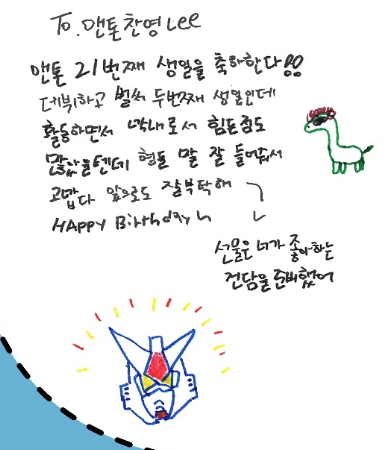 To. 앤톤찬영 Lee
앤톤 21번째 생일을 축하한다!!
데뷔하고 벌써 두번째 생일인데
활동하면서 막내로서 힘든점도
많았을텐데 형들 말 잘 들어줘서
고맙다 앞으로도 잘부탁해
HAppy Birthday
선물은 너가 좋아하는
건담을 준비했어